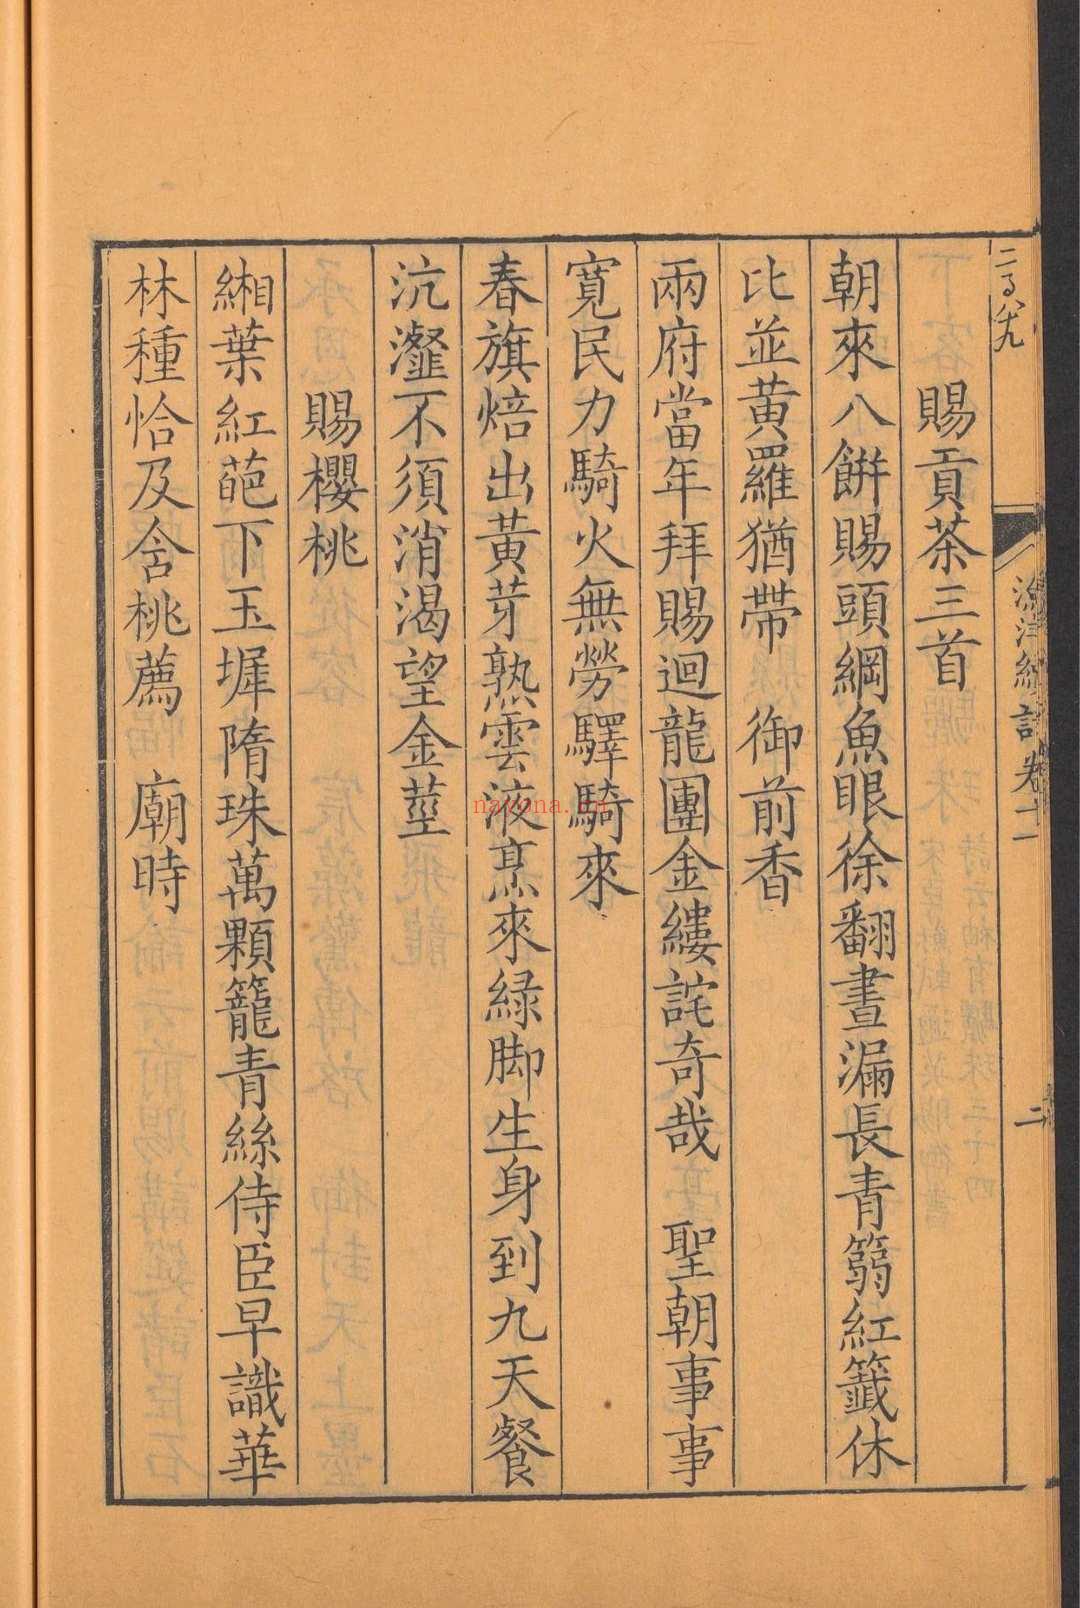 賜貢茶三首
朝來八餅賜頭綱魚眼徐翻晝漏長青篛紅籤休
比並黄羅猶帶　御前香
兩府當年拜賜迴龍團金縷詫奇哉　聖朝事事
寛民力騎火無勞驛騎來
春旗焙出黄芽熟雲液烹來緑脚生身到九天餐
沆瀣不須消渴望金莖
賜櫻桃
緗葉紅葩下玉墀隋珠萬顆籠青絲侍臣早識華
林種恰及含桃薦　廟時
卷十一
二
nayona.cn